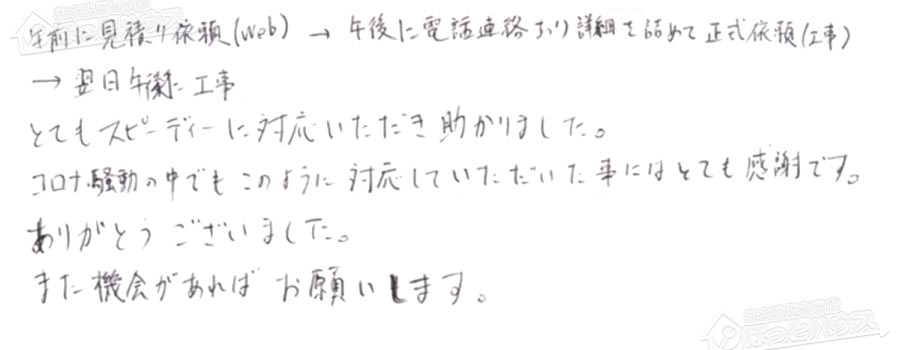 午前に見積り依頼(Web) → 午後に電話連絡あり詳細を詰めて正式依頼(工事)
→ 翌日午後に工事
とてもスピーディーに対応いただき助かりました。
コロナ騒動の中でもこのように対応していただいた事にはとても感謝です。
ありがとうございました。
また機会があればお願いします。
ほっとハウス